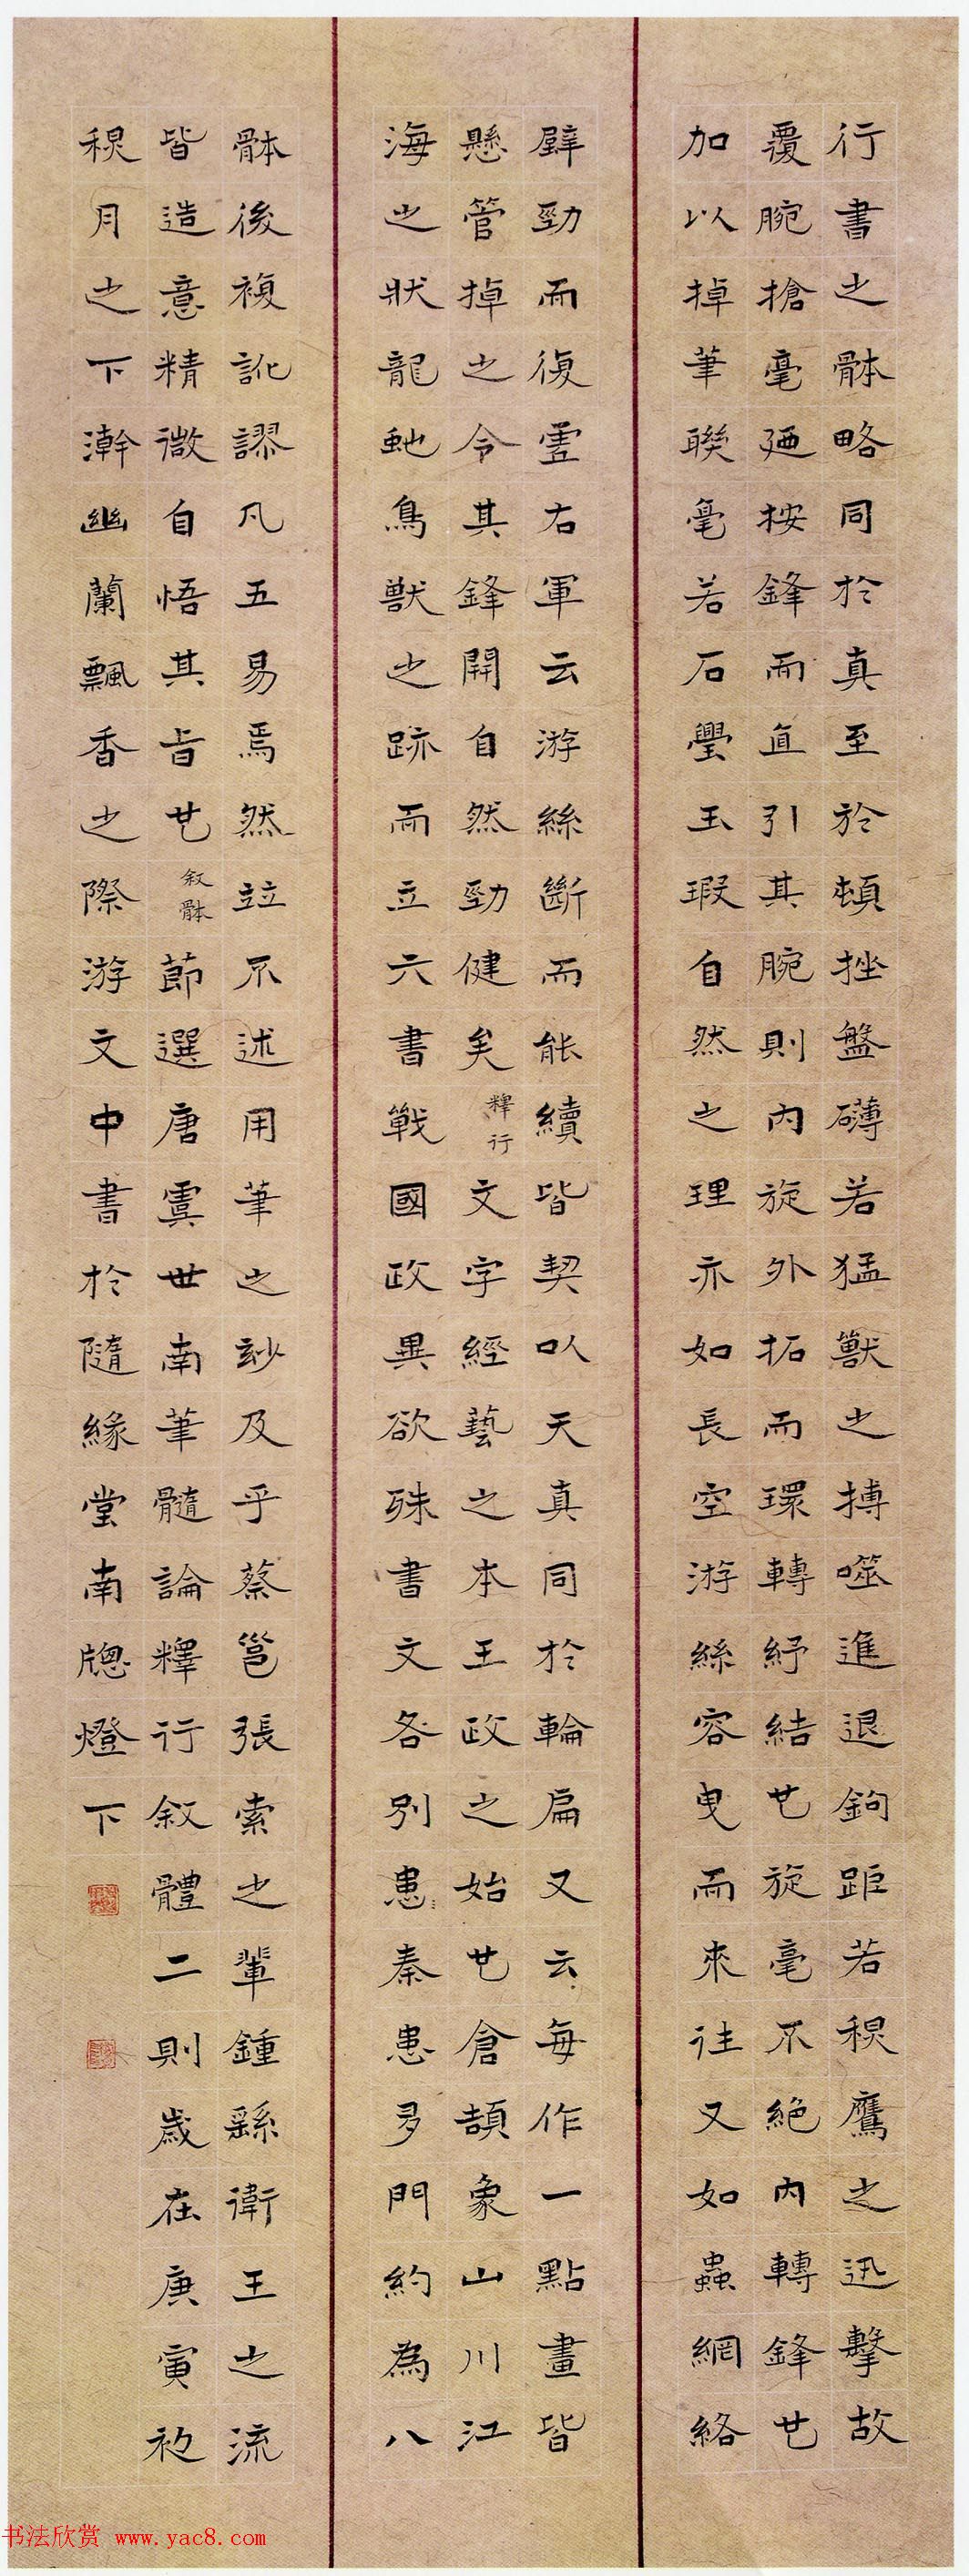 行書之骵略同於真至於頓挫盤礴若猛獸之搏噬進退鉤距若稉鷹之迅擊故
覆腕搶毫廼按鋒而直引其腕則內旋外拓而環轉紓結也旋毫不絕內轉鋒也
加以掉筆聯毫若石璺玉瑕自然之理亦如長空游絲容曳而來往又如蟲網絡
壁勁而復虛右軍云游絲斷而能續皆契以天真同於輪扁又云每作一點畫皆
懸管掉之令其鋒開自然勁健矣 釋行 文字經藝之本王政之始也倉頡象山川江
海之狀龍虵鳥獸之跡而立六書戰國政異欲殊書文各別患秦患多門約為八
骵後複訛謬凡五易焉然竝不述用筆之玅及乎蔡邕張索之輩鍾繇衛王之流
皆造意精微自悟其旨也 叙骵 節選唐虞世南筆髓論釋行叙體二則歲在庚寅初
稉月之下澣幽蘭飄香之際游文中書於隨緣堂南牕燈下
书法欣赏 www.yac8.com